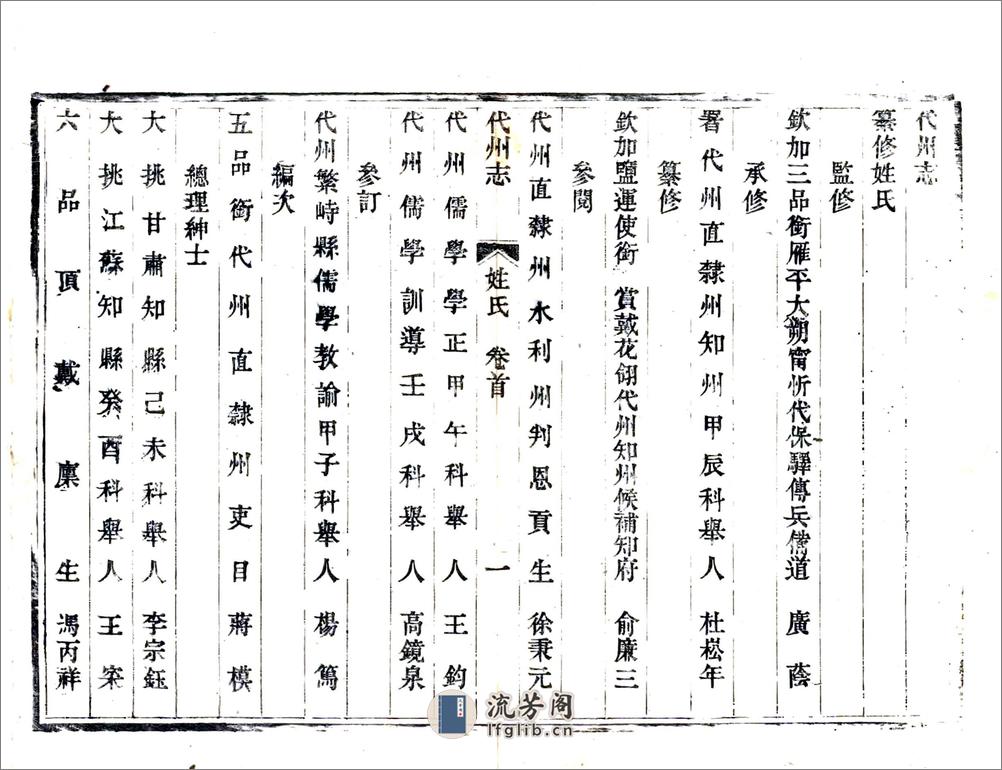 代州志
纂修姓氏
監修
欽加三品銜雁平大朔甯忻代保驛傳兵備道 廣 蔭
承修
署代州直隸州知州甲辰科舉人 杜崧年
纂修
欽加鹽運使銜 賞戴花翎代州知州候補知府 俞廉三
參閱
代州直隸州水利州判恩貢生 徐秉元
代州志 姓氏 卷首 一
代州儒學學正甲午科舉人 王 鈞
代州儒學訓導壬戌科舉人 高鏡泉
參訂
代州繁峙縣儒學教諭甲子科舉人 楊 篤
編次
五品銜代州直隸州吏目 蔣 模
總理紳士
大挑甘肅知縣己未科舉人 李宗鈺
大挑江蘇知縣癸酉科舉人 王 寀
六品頂戴廩生 馮丙祥
流芳阁
lfglib.cn